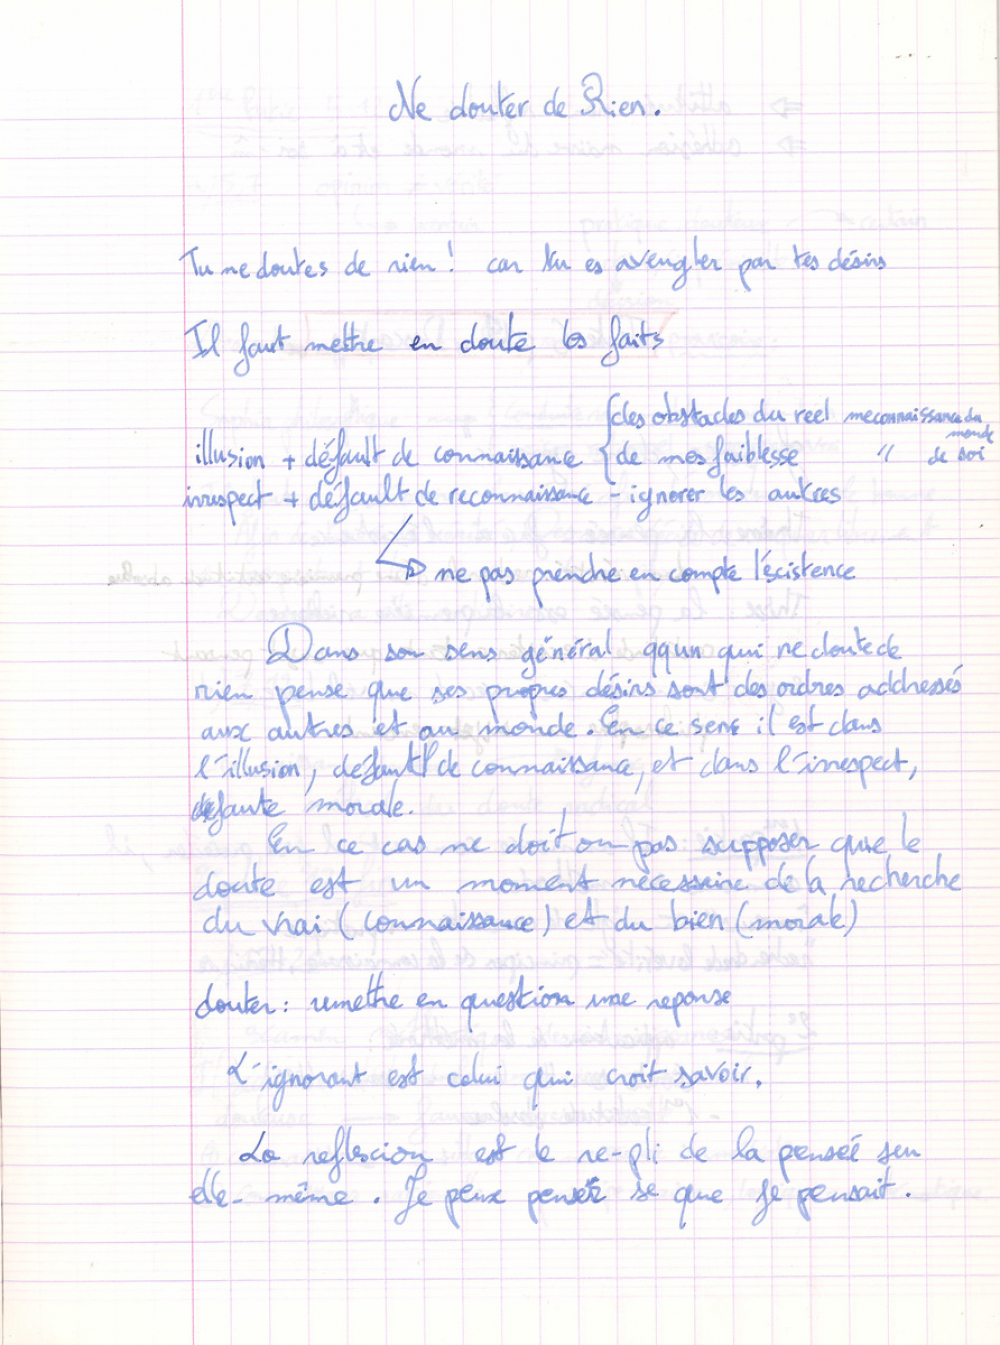 Ne douter de Rien.
Tu ne doutes de rien ! car tu es avengler par tes désirs
Il faut mettre en doute les faits
des obstacles du reel meconnaissance du monde
illusion + défault de connaissance { de mes faiblesse " de soi
irrespect + défault de reconnaissance - ignorer les autres
ne pas prendre en compte l'éxistence
Dans son sens général qqun qui ne doute de
rien pense que ses propres désirs sont des ordres addressés
aux autres et au monde. En ce sens il est dans
l'illusion, default de connaissance, et dans l'irrespect,
defaute morale.
En ce cas ne doit on pas supposer que le
doute est un moment necessaire de la recherche
du vrai (connaissance) et du bien (morale)
douter : remettre en question une reponse
L'ignorant est celui qui croit savoir.
La reflexion est le re-pli de la penseé seu
elle-même. Je peux penser se que je pensait.